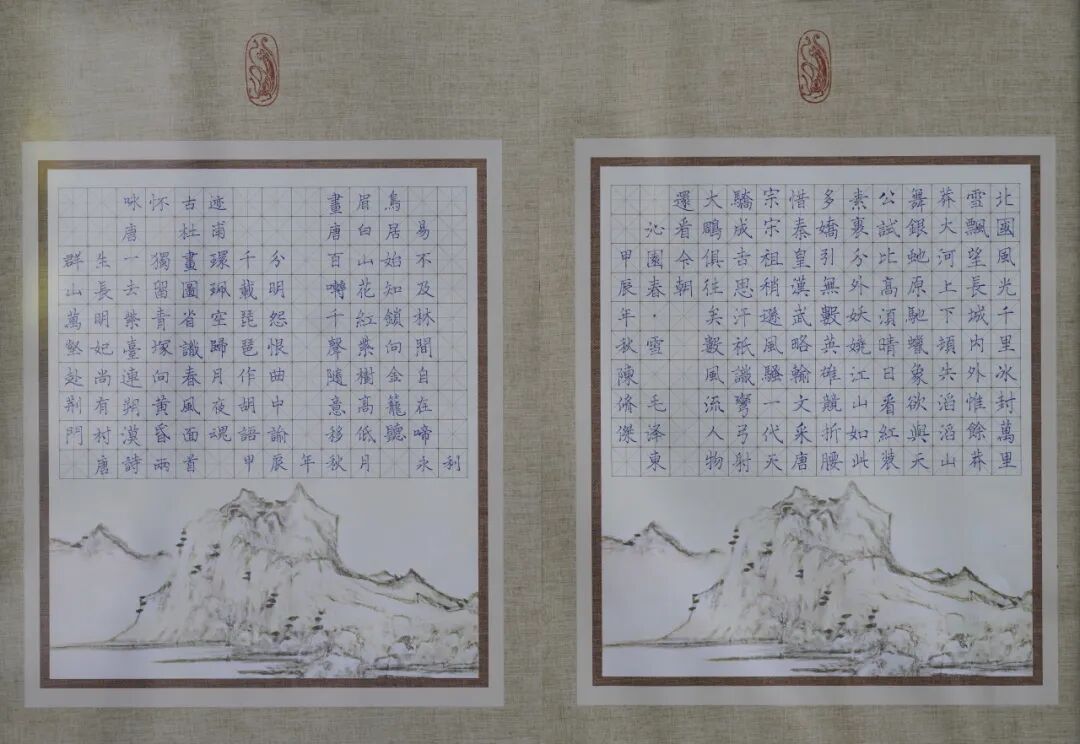 北國風光千里冰封萬里
雪飄望長城內外惟餘莽
莽大河上下頓失滔滔山
舞銀虵原馳蠟象欲與天
公試比高須晴日看紅裝
素裹分外妖嬈江山如此
多嬌引無數英雄競折腰
惜秦皇漢武略輸文采唐
宗宋祖稍遜風騷一代天
驕成吉思汗祇識彎弓射
大鵰俱往矣數風流人物
還看今朝
沁園春·雪 毛泽東
甲辰年秋陳脩傑
咏怀古迹
唐 杜甫
群山萬壑赴荊門
生長明妃尚有村
一去紫臺連朔漠
獨留青塚向黃昏
畫圖省識春風面
環珮空歸月夜魂
千載琵琶作胡語
分明怨恨曲中諭
畫眉鳥
唐白居易
百囀千聲隨意移
山花紅紫樹高低
始知鎖向金籠聽
不及林間自在啼
唐詩兩首 甲辰年秋月 永利